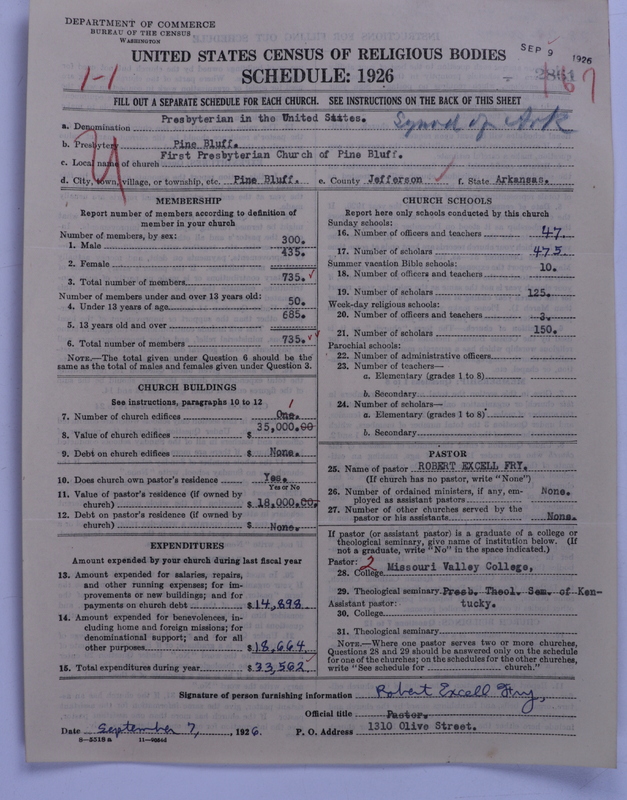 DEPARTMENT OF COMMERCE
BUREAU OF THE CENSUS
WASHINGTON
UNITED STATES CENSUS OF RELIGIOUS BODIES
SCHEDULE: 1926
SEP 9 1926
1-1
167
FILL OUT A SEPARATE SCHEDULE FOR EACH CHURCH. SEE INSTRUCTIONS ON THE BACK OF THIS SHEET
a. Denomination Presbyterian in the United States. Synod of Ark
b. Presbytery Pine Bluff.
c. Local name of church First Presbyterian Church of Pine Bluff.
d. City, town, village, or township, etc. Pine Bluff. e. County Jefferson f. State Arkansas.
MEMBERSHIP
Report number of members according to definition of
member in your church
Number of members, by sex:
1. Male 300.
2. Female 435.
3. Total number of members 735.
Number of members under and over 13 years old:
4. Under 13 years of age 50.
5. 13 years old and over 685.
6. Total number of members 735.
NOTE.—The total given under Question 6 should be the
same as the total of males and females given under Question 3.
CHURCH BUILDINGS
See instructions, paragraphs 10 to 12
7. Number of church edifices One. 1
8. Value of church edifices $ 35,000.00
9. Debt on church edifices $ None.
10. Does church own pastor's residence Yes.
Yes or No
11. Value of pastor's residence (if owned by
church) $ 18,000.00.
12. Debt on pastor's residence (if owned by
church) $ None.
EXPENDITURES
Amount expended by your church during last fiscal year
13. Amount expended for salaries, repairs,
and other running expenses; for im-
provements or new buildings; and for
payments on church debt $ 14,898
14. Amount expended for benevolences, in-
cluding home and foreign missions; for
denominational support; and for all
other purposes $ 18,664
15. Total expenditures during year $ 33,562
CHURCH SCHOOLS
Report here only schools conducted by this church
Sunday schools:
16. Number of officers and teachers 47
17. Number of scholars 475
Summer vacation Bible schools:
18. Number of officers and teachers 10.
19. Number of scholars 125.
Week-day religious schools:
20. Number of officers and teachers 3.
21. Number of scholars 150.
Parochial schools:
22. Number of administrative officers
23. Number of teachers—
a. Elementary (grades 1 to 8)
b. Secondary
24. Number of scholars—
a. Elementary (grades 1 to 8)
b. Secondary
PASTOR
25. Name of pastor ROBERT EXCELL FRY.
(If church has no pastor, write "None")
26. Number of ordained ministers, if any, em-
ployed as assistant pastors None.
27. Number of other churches served by the
pastor or his assistants None.
If pastor (or assistant pastor) is a graduate of a college or
theological seminary, give name of institution below. (If
not a graduate, write "No" in the space indicated.)
Pastor: 2
28. College Missouri Valley College,
29. Theological seminary Presb. Theol. Sem. of Ken-
Assistant pastor: tucky.
30. College
31. Theological seminary
NOTE.—Where one pastor serves two or more churches,
Questions 28 and 29 should be answered only on the schedule
for one of the churches; on the schedules for the other churches,
write "See schedule for church."
Signature of person furnishing information Robert Excell Fry,
Official title Pastor.
Date September 7, 1926. P. O. Address 1310 Olive Street.
8—5318 a